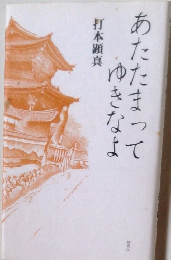 あたたまって
ゆきなよ
打本顕真